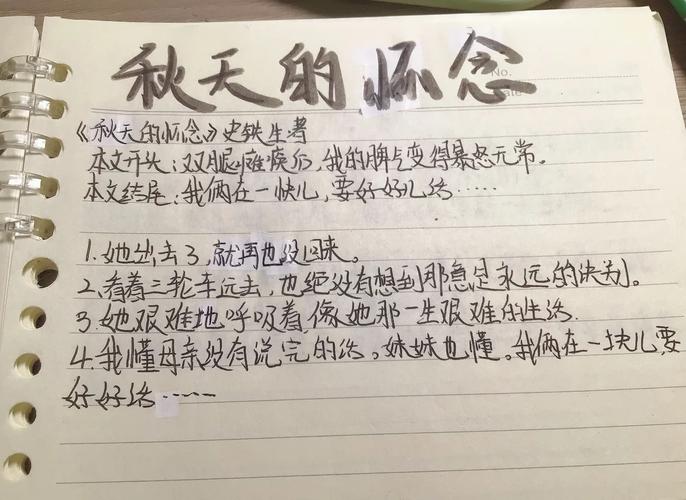 秋天的怀念
No.
Date
《秋天的怀念》史铁生著
本文开头：双腿瘫痪后，我的脾气变得暴怒无常。
本文结尾：我俩在一快儿，要好好儿活……
1.她出去了，就再也没回来。
2.看着三轮车远去，也绝没有想到那竟是永远的诀别。
3.她艰难地呼吸着，像她那一生艰难的生活.
4.我懂母亲没有说完的话。妹妹也懂。我俩在一块儿，要
好好活……